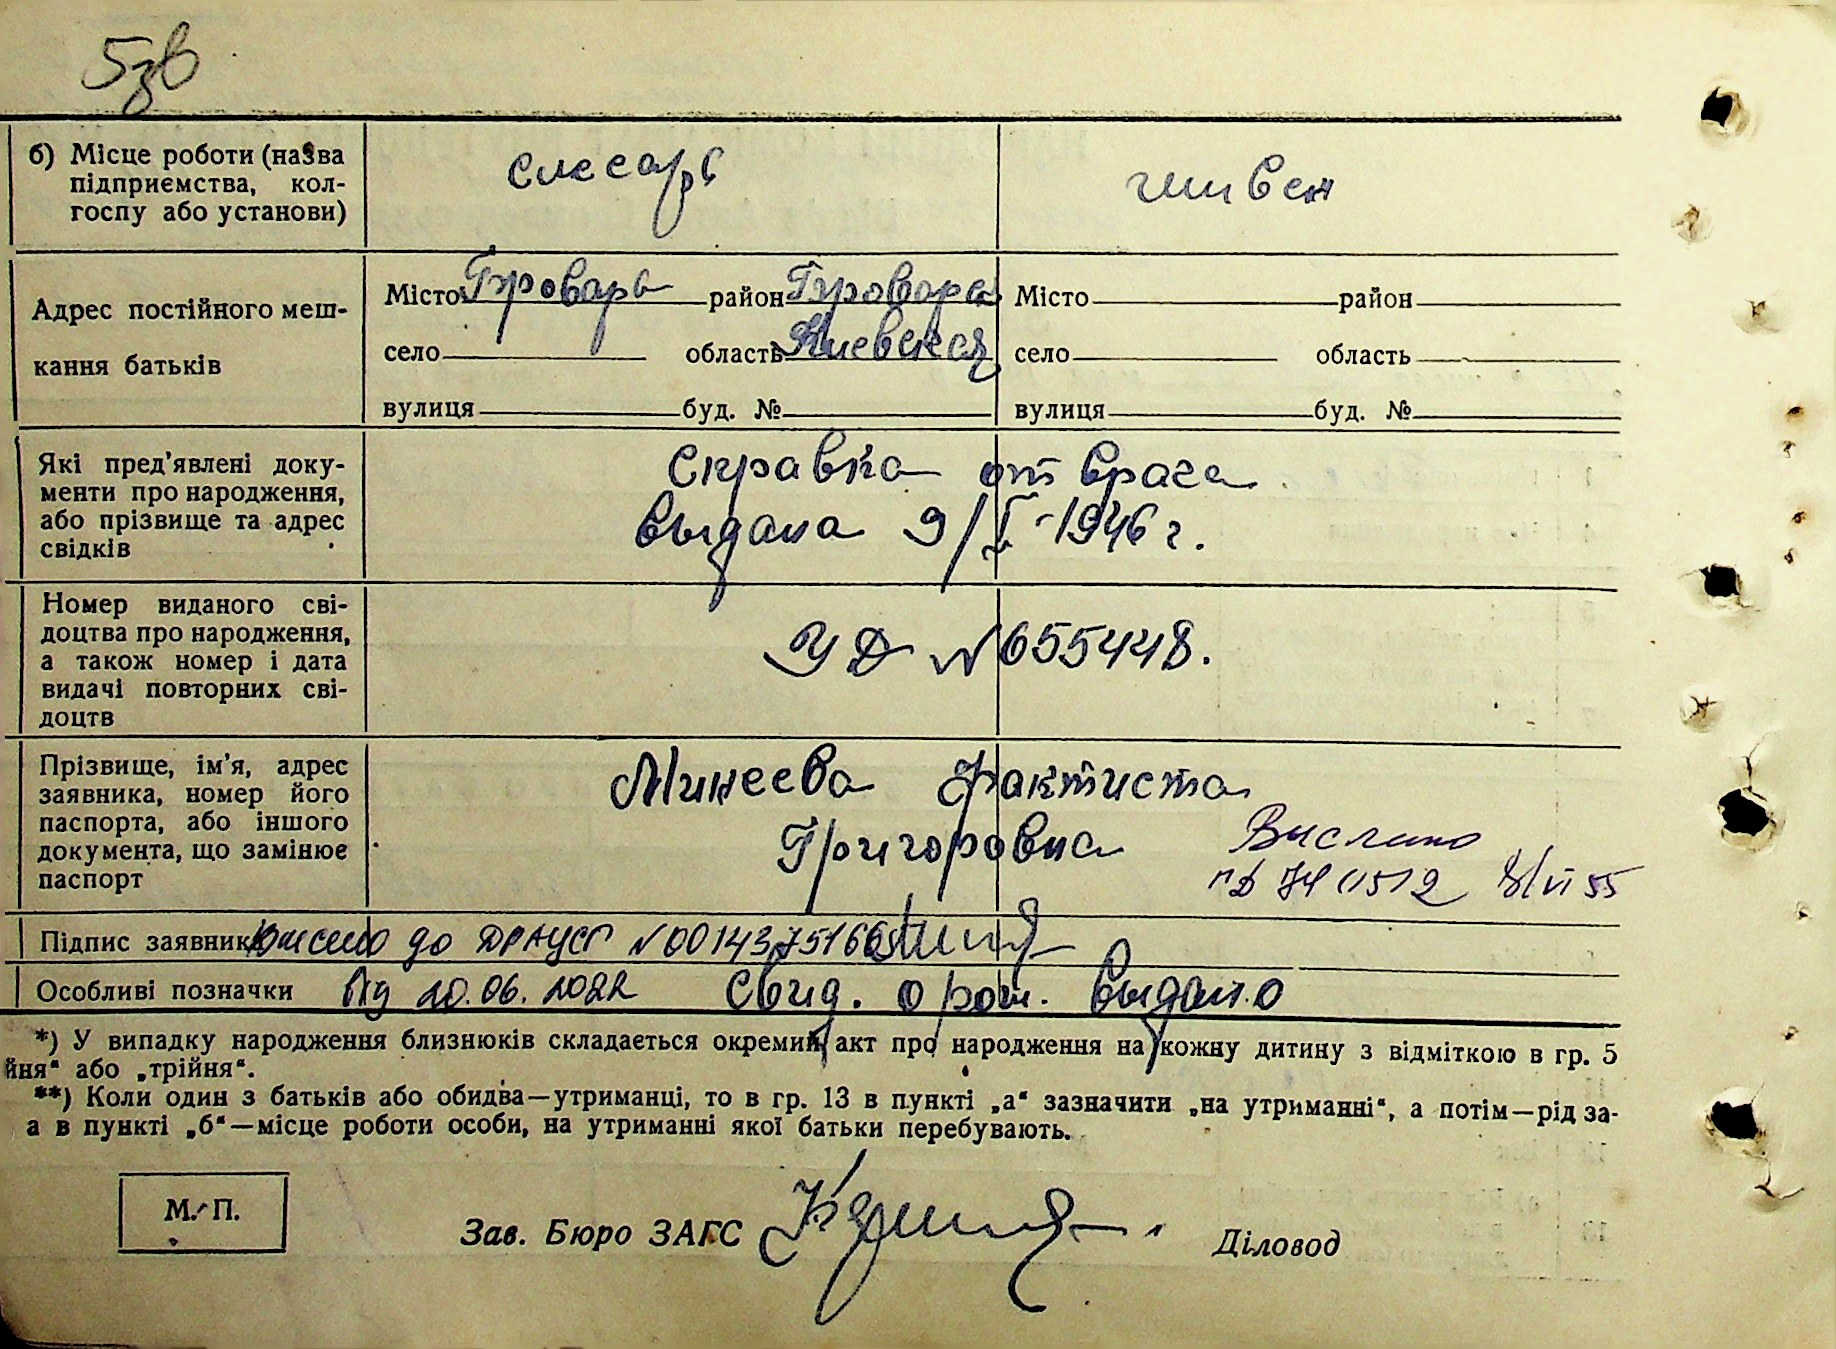 5зв
б) Місце роботи (назва
підприємства, кол-
госпу або установи)
слесарь
швея
Адрес постійного меш-
кання батьків
Місто Бровары район Бровары
село область Киевская
вулиця буд. №
Місто район
село область
вулиця буд. №
Які пред'явлені доку-
менти про народження,
або прізвище та адрес
свідків
Справка от врача
выдана 9/I-1946 г.
Номер виданого сві-
доцтва про народження,
а також номер і дата
видачі повторних сві-
доцтв
УД №655448.
Прізвище, ім'я, адрес
заявника, номер його
паспорта, або іншого
документа, що замінює
паспорт
Минеева
Григоровна
Выслано
8/VI 55
Підпис заявника
Внесено до ДРАЦСГ №00143751665
Особливі позначки
від 20.06.2022 Свид. о рож. выдано
*) У випадку народження близнюків складається окремий акт про народження на кожну дитину з відміткою в гр. 5
йня“ або „трійня“.
**) Коли один з батьків або обидва—утриманці, то в гр. 13 в пункті „а“ зазначити „на утриманні“, а потім—рід за-
а в пункті „б“—місце роботи особи, на утриманні якої батьки перебувають.
М. П.
Зав. Бюро ЗАГС
Діловод